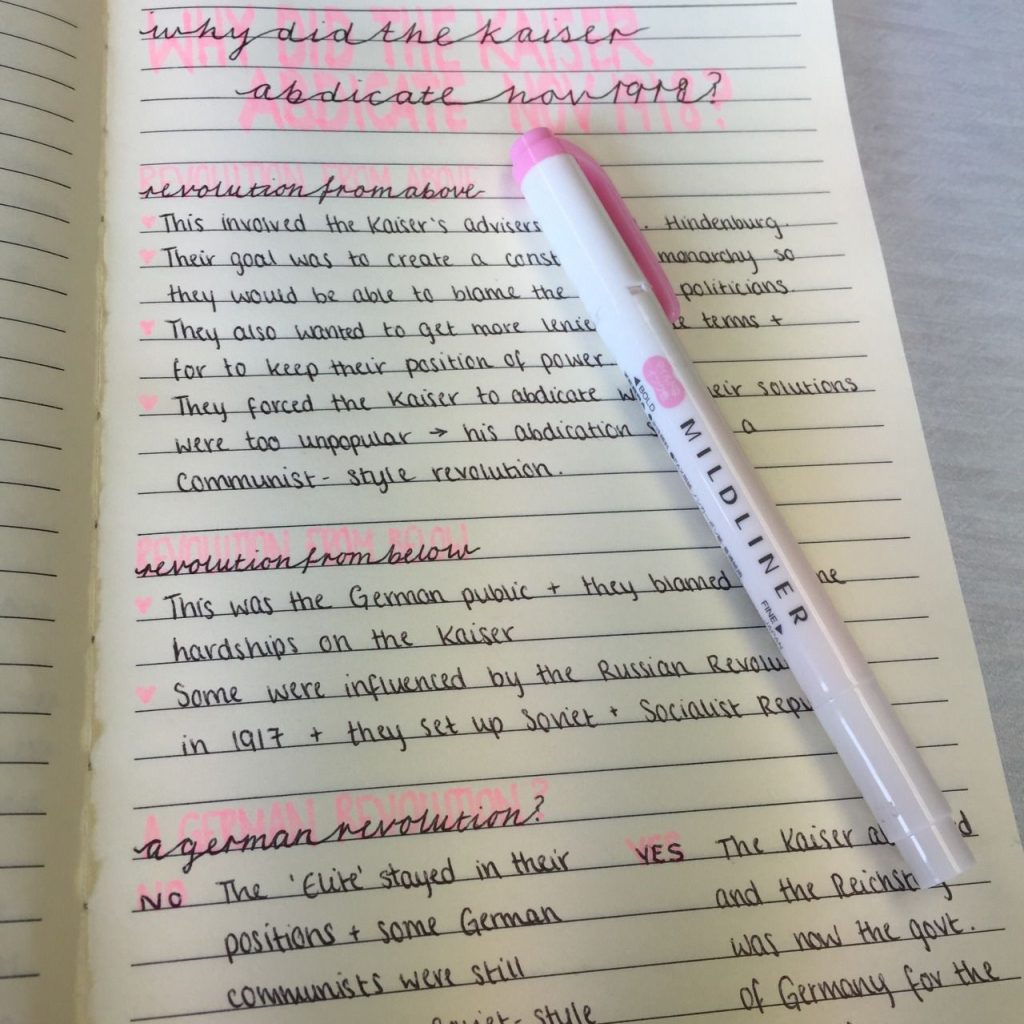 WHY DID THE KAISER
why did the kaiser
ABDICATE NOV 1918?
abdicate nov 1918?
REVOLUTION FROM ABOVE
revolution from above
This involved the Kaiser's advisers Hindenburg.
Their goal was to create a const monarchy so
they would be able to blame the politicians
They also wanted to get more lenie terms +
for to keep their position of power
They forced the Kaiser to abdicate w eir solutions
were too unpopular → his abdication s a
communist-style revolution.
REVOLUTION FROM BELOW
revolution from below
This was the German public + they blamed
hardships on the Kaiser
Some were influenced by the Russian Revolu
in 1917 + they set up Soviet + Socialist Repu
A GERMAN REVOLUTION?
a german revolution?
NO The 'Elite' stayed in their
positions + some German
communists were still
Soviet-style
YES The Kaiser a d
and the Reichstag
was now the govt.
of Germany for the
BOLD
MILDLINER
FINE